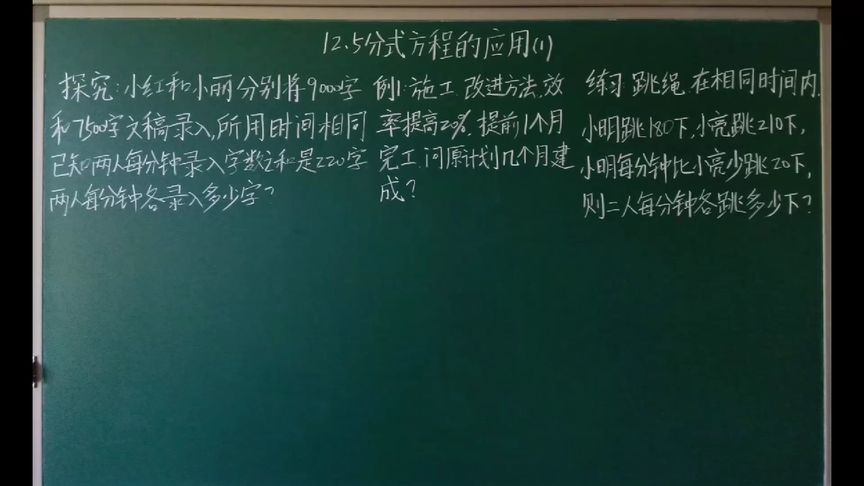 12.5分式方程的应用(1)
探究:小红和小丽分别将9000字
和7500字文稿录入,所用时间相同
已知两人每分钟录入字数之和是220字
两人每分钟各录入多少字?
例1:施工.改进方法,效
率提高20%.提前1个月
完工.问原计划几个月建
成?
练习:跳绳.在相同时间内.
小明跳180下,小亮跳210下,
小明每分钟比小亮少跳20下,
则二人每分钟各跳多少下?